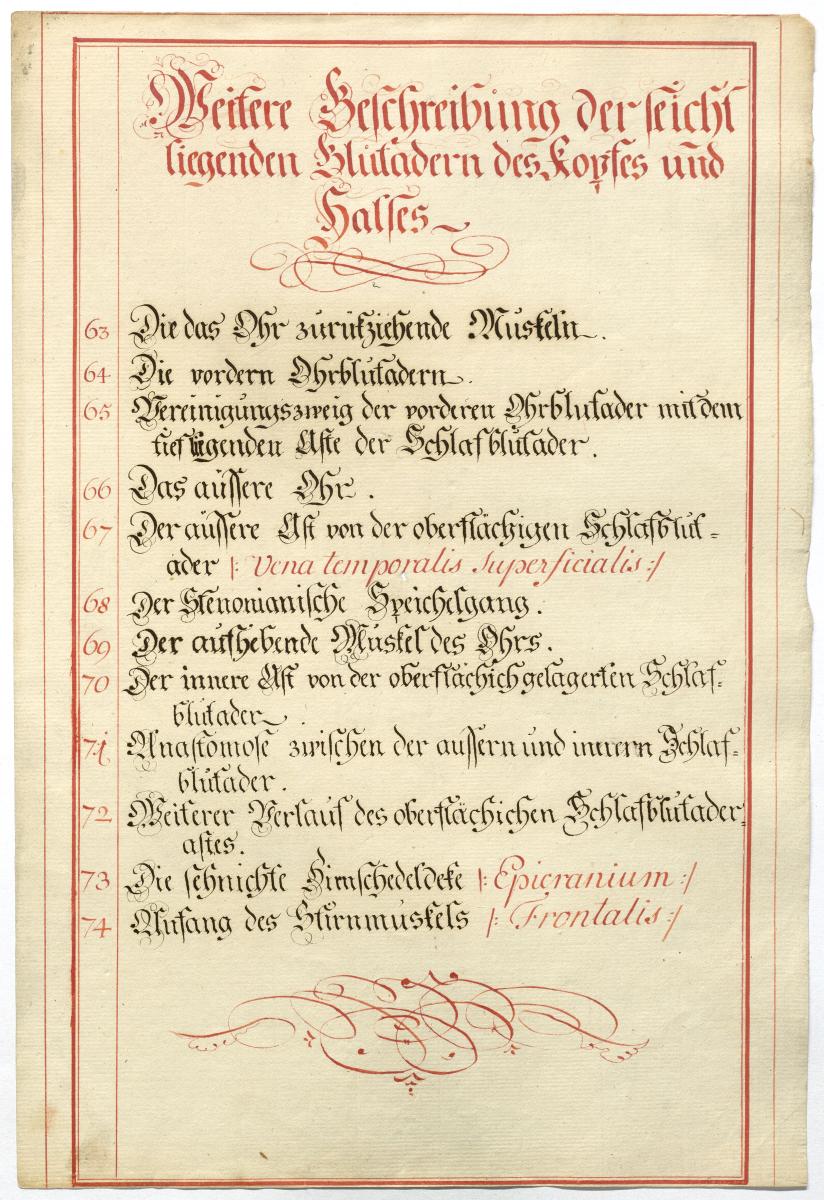 Weitere Beschreibung der seicht
liegenden Blutadern des Kopfes und
Halses
63 Die das Ohr zurükziehende Muskeln.
64 Die vordern Ohrblutadern.
65 Vereinigungszweig der vorderen Ohrblutader mit dem
tiefligenden Aste der Schlafblutader.
66 Das äussere Ohr.
67 Der äussere Ast von der oberflächigen Schlafblut=
ader |: Vena temporalis superficialis :|
68 Der Stenonianische Speichelgang.
69 Der aufhebende Muskel des Ohrs.
70 Der innere Ast von der oberflächich gelagerten Schlaf=
blutader.
71 Anastomose zwischen der äussern und innern Schlaf=
blutader.
72 Weiterer Verlauf des oberflächichen Schlafblutader=
astes.
73 Die sehnichte Hirnschedeldeke |: Epicranium :|
74 Anfang des Stirnmuskels |: Frontalis :|